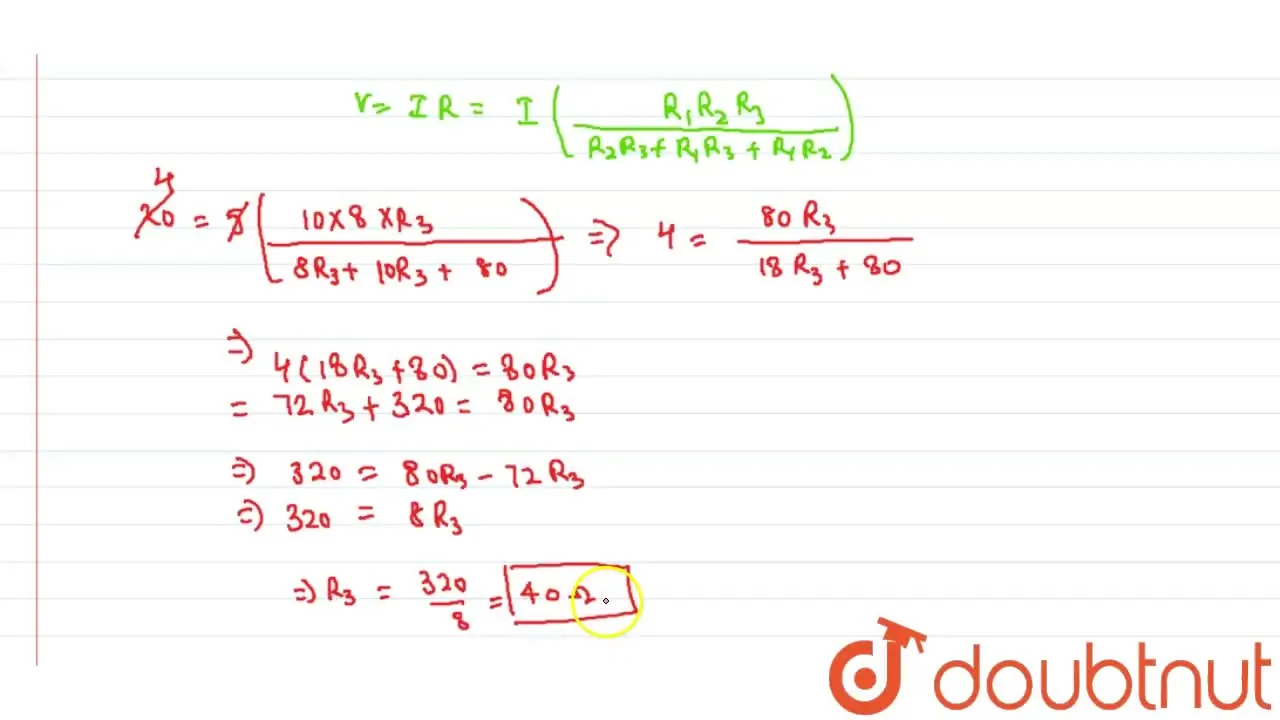 V = IR = I ( R₁R₂R₃ / R₂R₃ + R₁R₃ + R₁R₂ )
4
20 = 5 ( 10×8×R₃ / 8R₃ + 10R₃ + 80 ) ⇒ 4 = 80R₃ / 18R₃ + 80
⇒ 4(18R₃ + 80) = 80R₃
= 72R₃ + 320 = 80R₃
⇒ 320 = 80R₃ - 72R₃
⇒ 320 = 8R₃
⇒ R₃ = 320 / 8 = 40 Ω
doubtnut